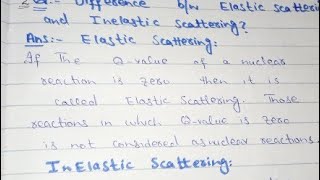 Q:- Difference b/w Elastic Scatteri
and Inelastic Scattering?
Ans:- Elastic Scattering:
If The Q-value of a nuclear
reaction is zero then it is
called Elastic Scattering. Those
reactions in which Q-value is zero
is not considered as nuclear reactions.
InElastic Scattering: